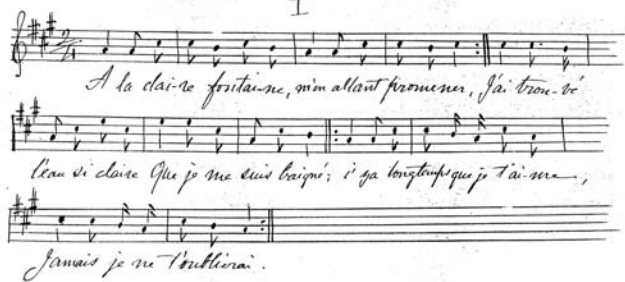 I
2/4
A la clai-re fontai-ne, m'en allant promener, J'ai trou-vé
l'eau si claire Que je me suis baigné; i' ya longtemps que je t'ai-me,
Jamais je ne t'oublierai.